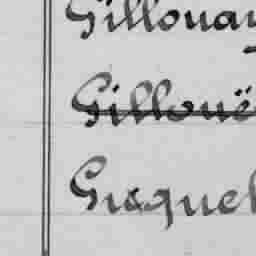 Gillouay
Gillouë
Guquel